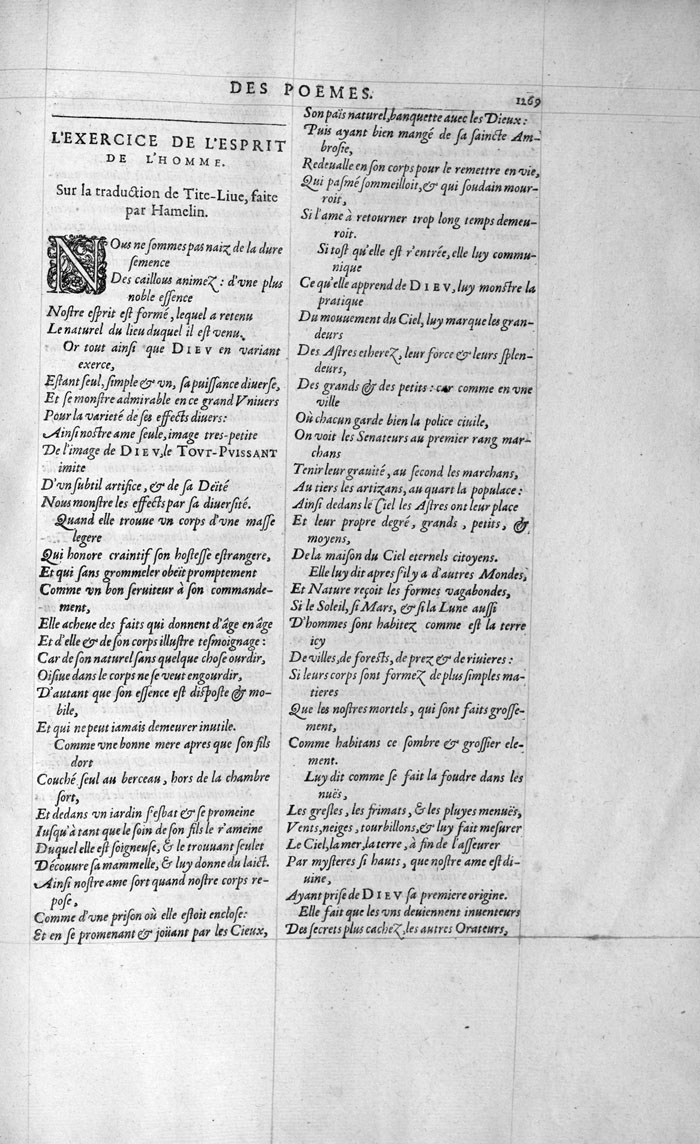 DES POEMES.
1269
L'EXERCICE DE L'ESPRIT
DE L'HOMME.
Sur la traduction de Tite-Liue, faite
par Hamelin.
NOus ne sommes pas naiz de la dure
semence
Des caillous animez : d'vne plus
noble essence
Nostre esprit est formé, lequel a retenu
Le naturel du lieu duquel il est venu.
Or tout ainsi que DIEV en variant
exerce,
Estant seul, simple & vn, sa puissance diuerse,
Et se monstre admirable en ce grand Vniuers
Pour la varieté de ses effects diuers:
Ainsi nostre ame seule, image tres-petite
De l'image de DIEV, le TOVT-PVISSANT
imite
D'vn subtil artifice, & de sa Deïté
Nous monstre les effects par sa diuersité.
Quand elle trouue vn corps d'vne masse
legere
Qui honore craintif son hostesse estrangere,
Et qui sans grommeler obeït promptement
Comme vn bon seruiteur à son commande-
ment,
Elle acheue des faits qui donnent d'âge en âge
Et d'elle & de son corps illustre tesmoignage:
Car de son naturel sans quelque chose ourdir,
Oisiue dans le corps ne se veut engourdir,
D'autant que son essence est disposte & mo-
bile,
Et qui ne peut iamais demeurer inutile.
Comme vne bonne mere apres que son fils
dort
Couché seul au berceau, hors de la chambre
sort,
Et dedans vn iardin s'esbat & se promeine
Iusqu'à tant que le soin de son fils le r'ameine
Duquel elle est soigneuse, & le trouuant seulet
Découure sa mammelle, & luy donne du laict.
Ainsi nostre ame sort quand nostre corps re-
pose,
Comme d'vne prison où elle estoit enclose:
Et en se promenant & joüant par les Cieux,
Son païs naturel, banquette auec les Dieux:
Puis ayant bien mangé de sa saincte Am-
brosie,
Redeualle en son corps pour le remettre en vie,
Qui pasmé sommeilloit, & qui soudain mour-
roit,
Si l'ame à retourner trop long temps demeu-
roit.
Si tost qu'elle est r'entrée, elle luy commu-
nique
Ce qu'elle apprend de DIEV, luy monstre la
pratique
Du mouuement du Ciel, luy marque les gran-
deurs
Des Astres etherez, leur force & leurs splen-
deurs,
Des grands & des petits : car comme en vne
ville
Où chacun garde bien la police ciuile,
On voit les Senateurs au premier rang mar-
chans
Tenir leur grauité, au second les marchans,
Au tiers les artizans, au quart la populace:
Ainsi dedans le Ciel les Astres ont leur place
Et leur propre degré, grands, petits, &
moyens,
De la maison du Ciel eternels citoyens.
Elle luy dit apres s'il y a d'autres Mondes,
Et Nature reçoit les formes vagabondes,
Si le Soleil, si Mars, & si la Lune aussi
D'hommes sont habitez comme est la terre
icy
De villes, de forests, de prez & de riuieres:
Si leurs corps sont formez de plus simples ma-
tieres
Que les nostres mortels, qui sont faits grosse-
ment,
Comme habitans ce sombre & grossier ele-
ment.
Luy dit comme se fait la foudre dans les
nuës,
Les gresles, les frimats, & les pluyes menuës,
Vents, neiges, tourbillons, & luy fait mesurer
Le Ciel, la mer, la terre, à fin de l'asseurer
Par mysteres si hauts, que nostre ame est di-
uine,
Ayant prise de DIEV sa premiere origine.
Elle fait que les vns deuiennent inuenteurs
Des secrets plus cachez, les autres Orateurs,